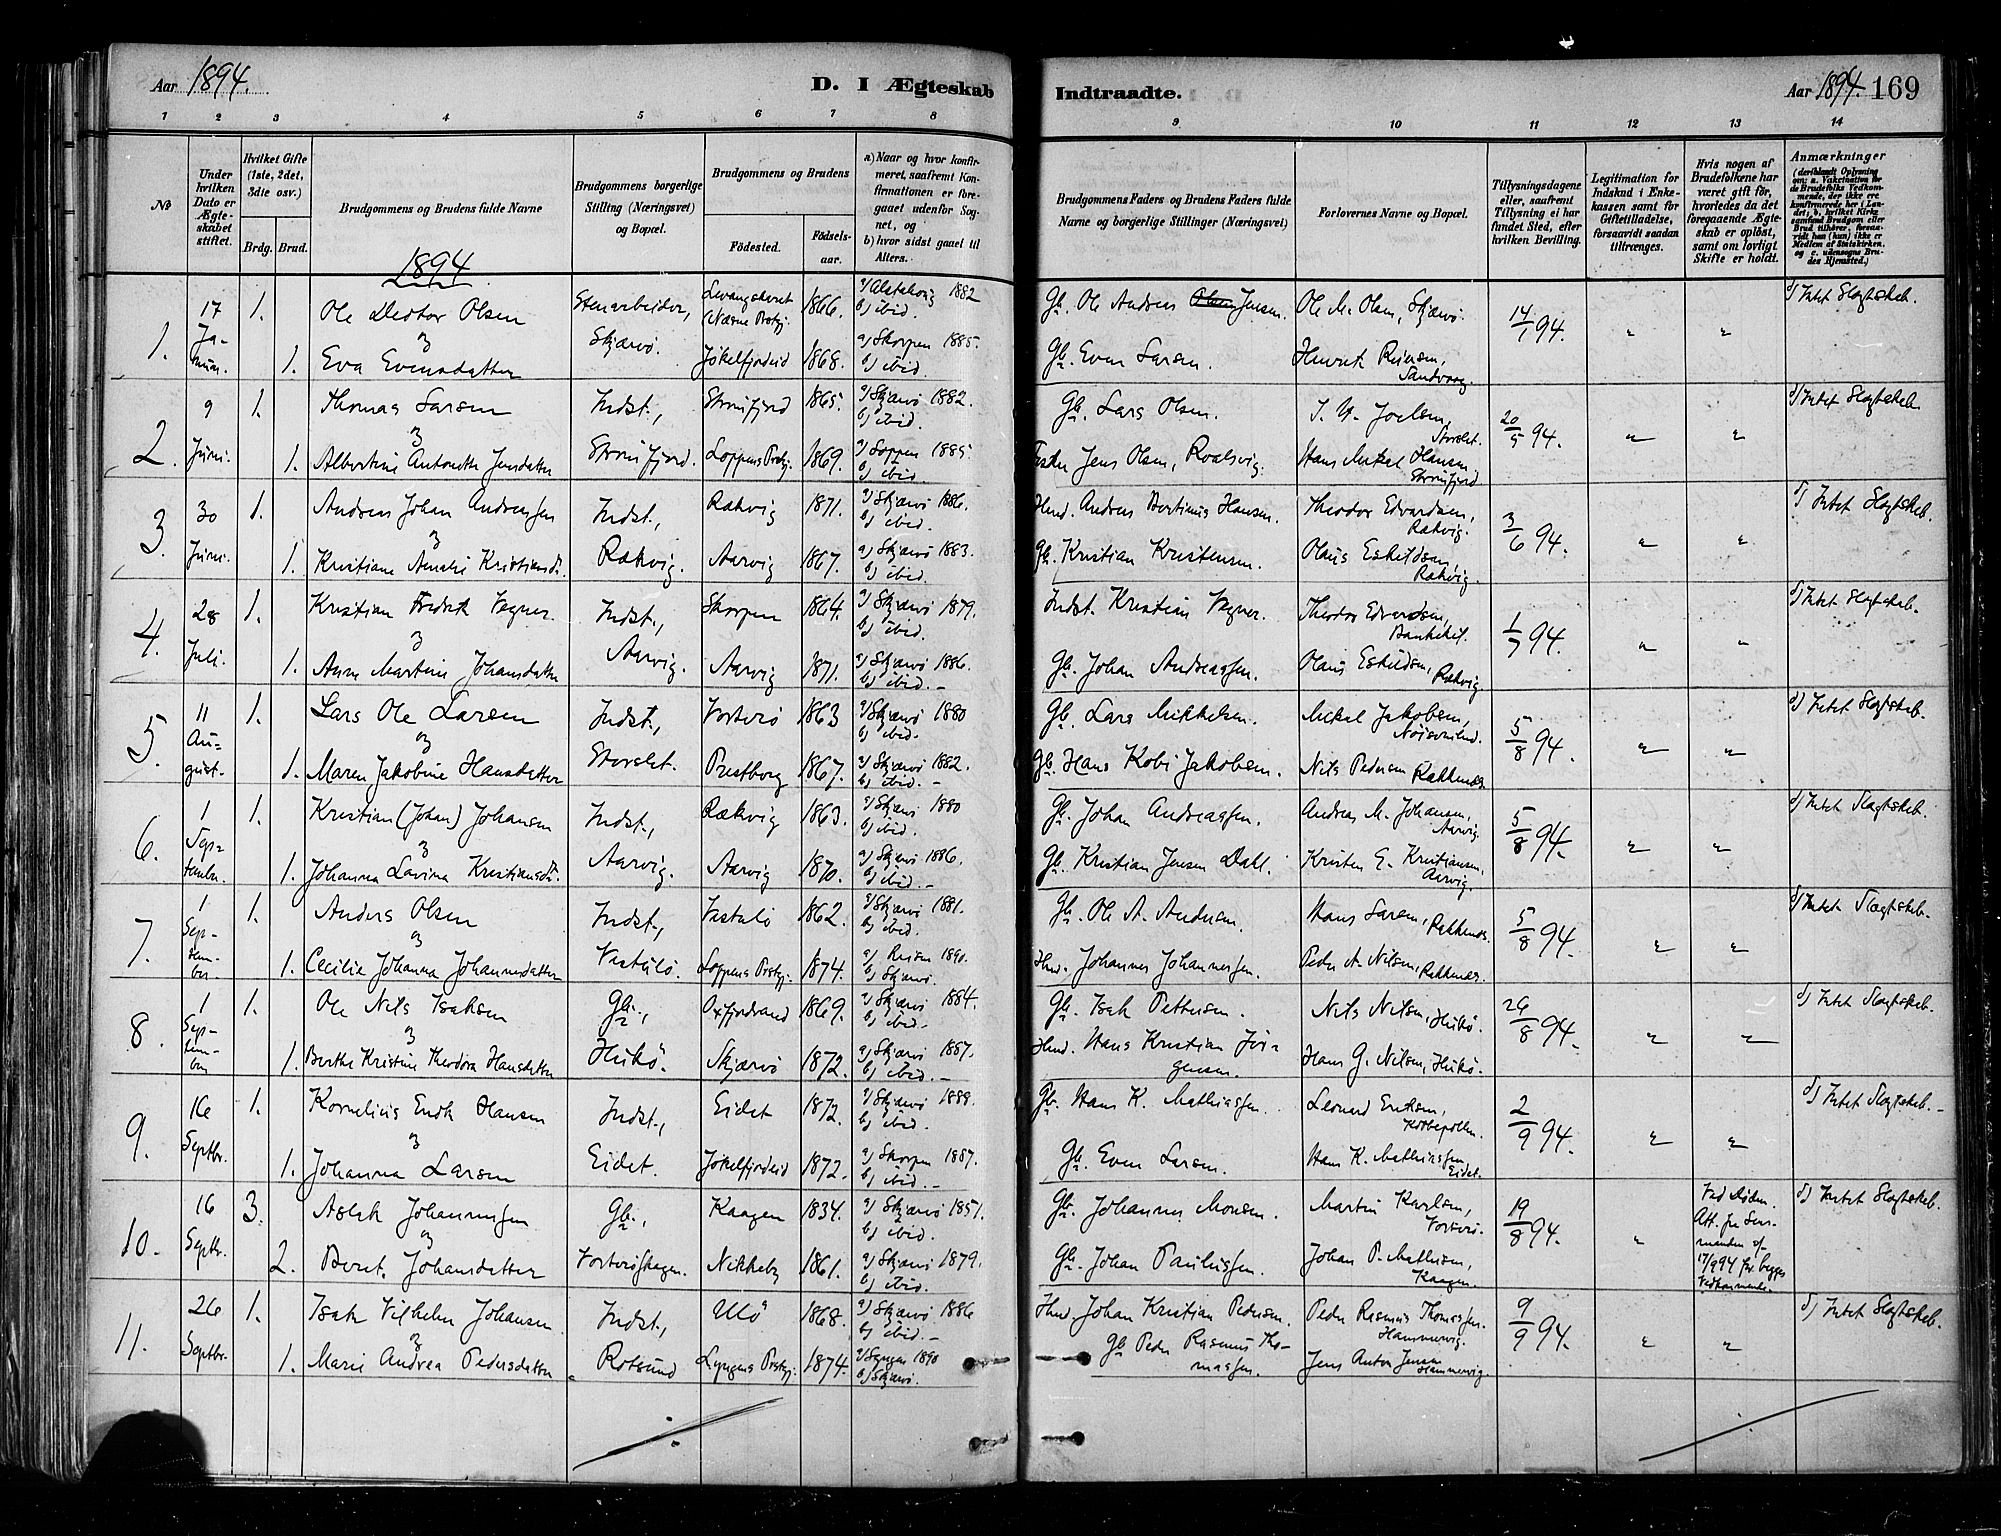 Aar 1894.
D. I Ægteskab
Indtraadte.
Aar 1894. 169
1 2 3 4 5 6 7 8 9 10 11 12 13 14
No
Under hvilken Dato er Ægteskabet stiftet.
Hvilket Gifte (1ste, 2det, 3die osv.)
Brdg. Brud.
Brudgommens og Brudens fulde Navne
Brudgommens borgerlige Stilling (Næringsvei) og Bopæl.
Brudgommens og Brudens
Fødested. Fødselsaar.
a) Naar og hvor konfirmeret, saafremt Konfirmationen er foregaaet udenfor Sognet, og
b) hvor sidst gaaet til Alters.
Brudgommens Faders og Brudens Faders fulde Navne og borgerlige Stillinger (Næringsvei)
Forlovernes Navne og Bopæl.
Tillysningsdagene eller, saafremt Tillysning ei har fundet Sted, efter hvilken Bevilling.
Legitimation for Indskud i Enkekassen samt for Giftetilladelse, forsaavidt saadan tiltrænges.
Hvis nogen af Brudefolkene har været gift før, hvorledes da det foregaaende Ægteskab er opløst, samt om lovligt Skifte er holdt.
Anmærkninger
1894
1. 17 Januar. 1. Ole Olsen Stenarbeider, 1866. a) Alstahoug 1882 b) ibid. Gb. Ole Andreas Jensen. Ole M. Olsen, Skjærvö. 14/1 94. " " d) Intet Slagtskab.
& Skjærvö.
1. Eva Evensdatter Jökelfjordeid 1868. a) Skorpen 1885. b) ibid. Gb. Even Larsen.
2. 9 Juni. 1. Thomas Larsen Indst., 1865. a) Skjærvö 1882. b) ibid. Gb. Lars Olsen. Storslet. 20/5 94. " " d) Intet Slagtskab
&
1. Albertine Antonette Jensdatter Loppens Prstgj. 1869. a) Loppen 1885. b) ibid. Jens Olsen, Hans Mikal Hansen
3. 30 Juni. 1. Andreas Johan Andreassen Indst., Rakvig 1871. a) Skjærvö 1886. b) ibid. Andreas Hansen. Theodor Edvardsen, Rakvig. 3/6 94. " " d) Intet Slagtskab.
& Rakvig.
1. Kristiane Amalie Kristiansd. Aarvig 1867. a) Skjærvö 1883. b) ibid. Gb. Kristian Kristensen. Olaus Eskildsen, Rakvig.
4. 28 Juli. 1. Kristian Fredrik Vagner. Indst., Skorpen 1864. a) Skjærvö 1879. b) ibid. Indst. Kristian Vagner. Theodor Edvardsen, 1/7 94. " " d) Intet Slagtskab.
& Aarvig.
1. Anne Martine Johansdatter Aarvig 1871. a) Skjærvö 1886. b) ibid. Gb. Johan Andreassen. Olaus Eskildsen, Rakvig.
5. 11 August. 1. Lars Ole Larsen Indst., Vorterö 1863 a) Skjærvö 1880 b) ibid. Gb. Lars Mikkelsen. Mikal Jakobsen, 5/8 94. " " d) Intet Slagtskab.
& Storslet.
1. Maren Jakobine Hansdatter Prestborg 1867. a) Skjærvö 1882. b) ibid. Gb. Hans Jakobsen. Nils Pedersen Rakkenæs.
6. 1 September. 1. Kristian (Johan) Johansen Indst., Rakvig 1863. a) Skjærvö 1880 b) ibid. Gb. Johan Andreassen. Andreas M. Johansen, Aarvig. 5/8 94. " " d) Intet Slagtskab.
& Aarvig.
1. Johanna Lavina Kristiansd. Aarvig 1870. a) Skjærvö 1886. b) ibid. Gb. Kristian Jensen Dahl. Kristen E. Kristiansen, Aarvig.
7. 1 September 1. Anders Olsen Indst., 1862. a) Skjærvö 1881. b) ibid. Gb. Ole A. Andersen. Hans Larsen, Rakkenæs. 5/8 94. " " d) Intet Slagtskab.
&
1. Cecilie Johanna Johannesdatter Loppens Prstgj. 1874. b) Skjærvö. Johannes Johannessen. Peder A. Nilsen, Rakkenæs.
8. 1 September 1. Ole Nils Isaksen Gb., Oxfjordvand 1869. a) Skjærvö 1884. b) ibid. Gb. Isak Pettersen. Nils Nilsen, Hukö. 26/8 94. " " d) Intet Slagtskab.
& Hukö.
1. Berthe Kristine Theodora Hansdatter Skjærvö 1872. a) Skjærvö 1887. b) ibid. Hans Kristian Jörgensen. Hans G. Nilsen, Hukö.
9. 16 Septbr. 1. Kornelius Hansen Indst., Eidet 1872. a) Skjærvö 1888. b) ibid. Gb. Hans K. Mathiassen. Leonard Eriksen, 2/9 94. " " d) Intet Slagtskab.
& Eidet.
1. Johanna Larsen Jökelfjordeid 1872. a) Skorpen 1887. b) ibid. Gb. Even Larsen. Hans K. Mathiassen, Eidet.
10. 16 Septbr. 3. Aslak Johannessen Gb., Kaagen 1834. a) Skjærvö 1851. b) ibid. Gb. Johannes Monsen. Martin Karlsen, Vorterö. 19/8 94. " Ved Döden. Att. fra Lensmanden af 17/9 94 for begges Vedkommende. d) Intet Slagtskab.
&
2. Beret Johansdatter Nikkeby 1861. a) Skjærvö 1879. b) ibid. Gb. Johan Paulussen. Johan P. Mathisen, Kaagen.
11. 26 Septbr. 1. Isak Vilhelm Johansen. Indst., Ulö 1868. a) Skjærvö 1886 b) ibid. Johan Kristian Pedersen. Peder Rasmus Thomassen, Hammervig. 9/9 94. " " d) Intet Slagtskab.
& Rotsund
1. Marie Andrea Pedersdatter Lyngens Prstgj. 1874. a) Lyngen 1890 b) Skjærvö. Gb Peder Rasmus Thomassen. Jens Anton Jensen Hammervig.